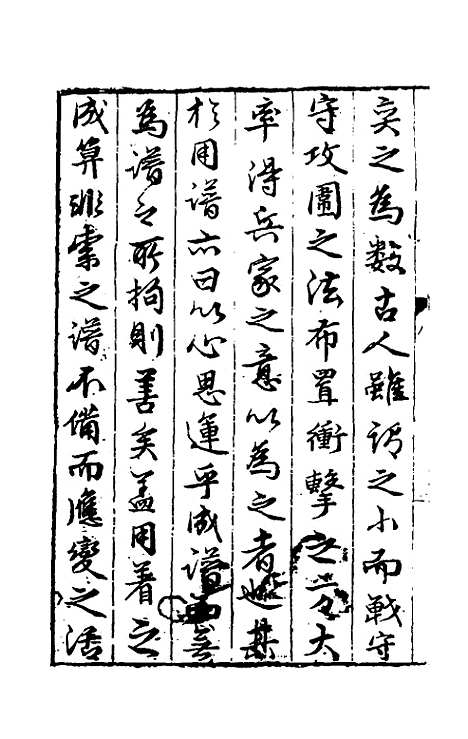 奕之為數古人雖謂之小而戰守
守攻圍之法布置衝擊之云大
率得兵家之意以為之者其
於用譜亦曰以心思運乎成譜而無
為譜之所拘則善矣盖用着之
成算非索之譜不備而應變之活